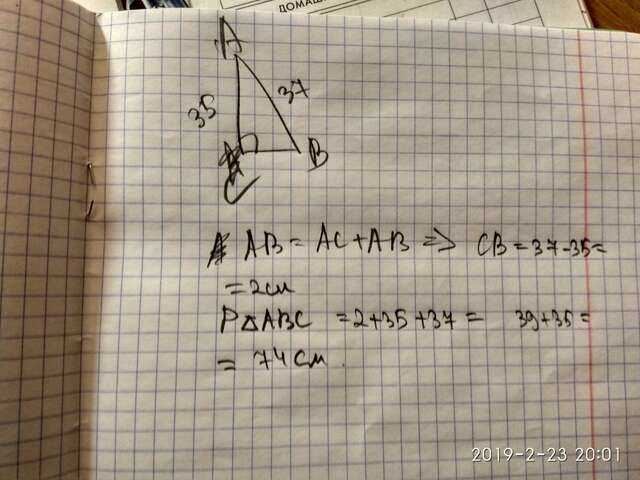 ДОМАШ
A
35
37
B
C
AB = AC + AB => CB = 37-35=
= 2см
P△ABC = 2+35+37 = 39+35=
= 74 см.
2019-2-23 20:01